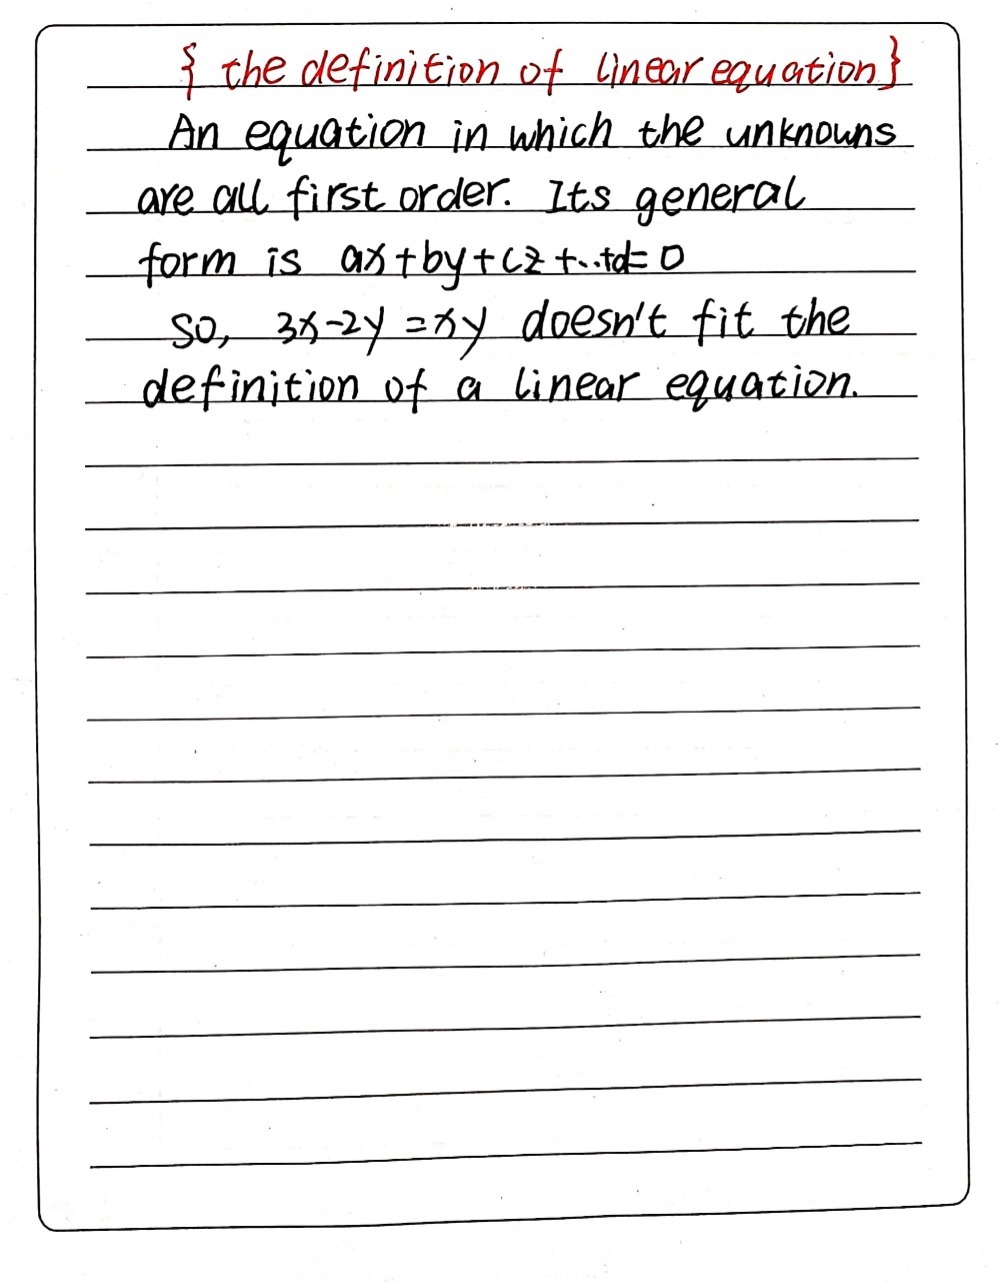 { the definition of linear equation}
An equation in which the unknouns
are all first order. Its general
form is ax+by+cz+...+d=0
So, 3x-2y=xy doesn't fit the
definition of a linear equation.